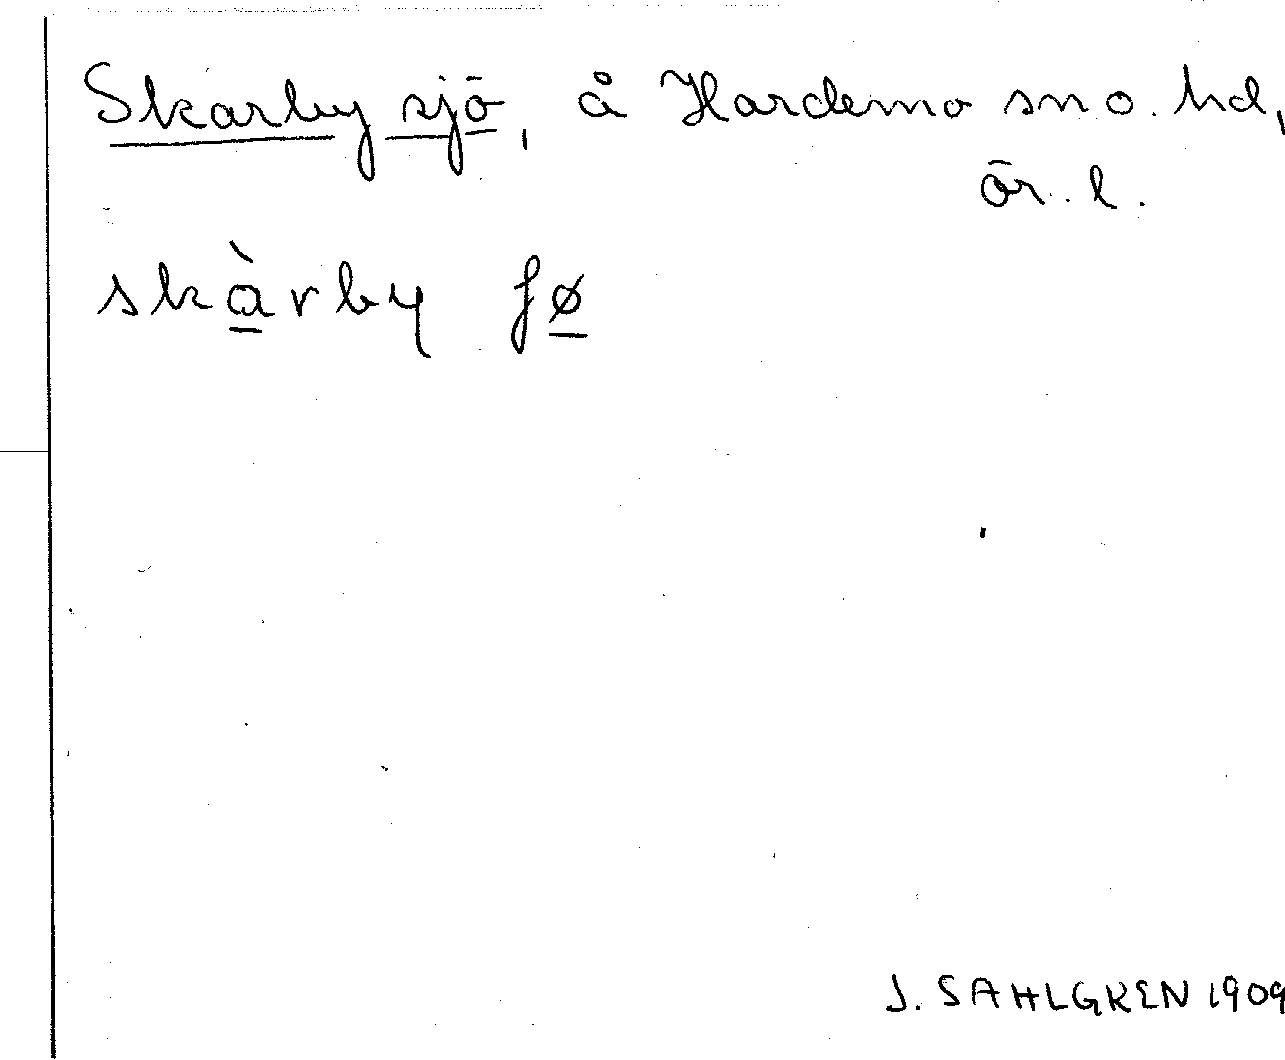 Skarby sjö, å Hardemo sn o. hd,
ör. l.
skàrby ʃø
J. SAHLGREN 1909